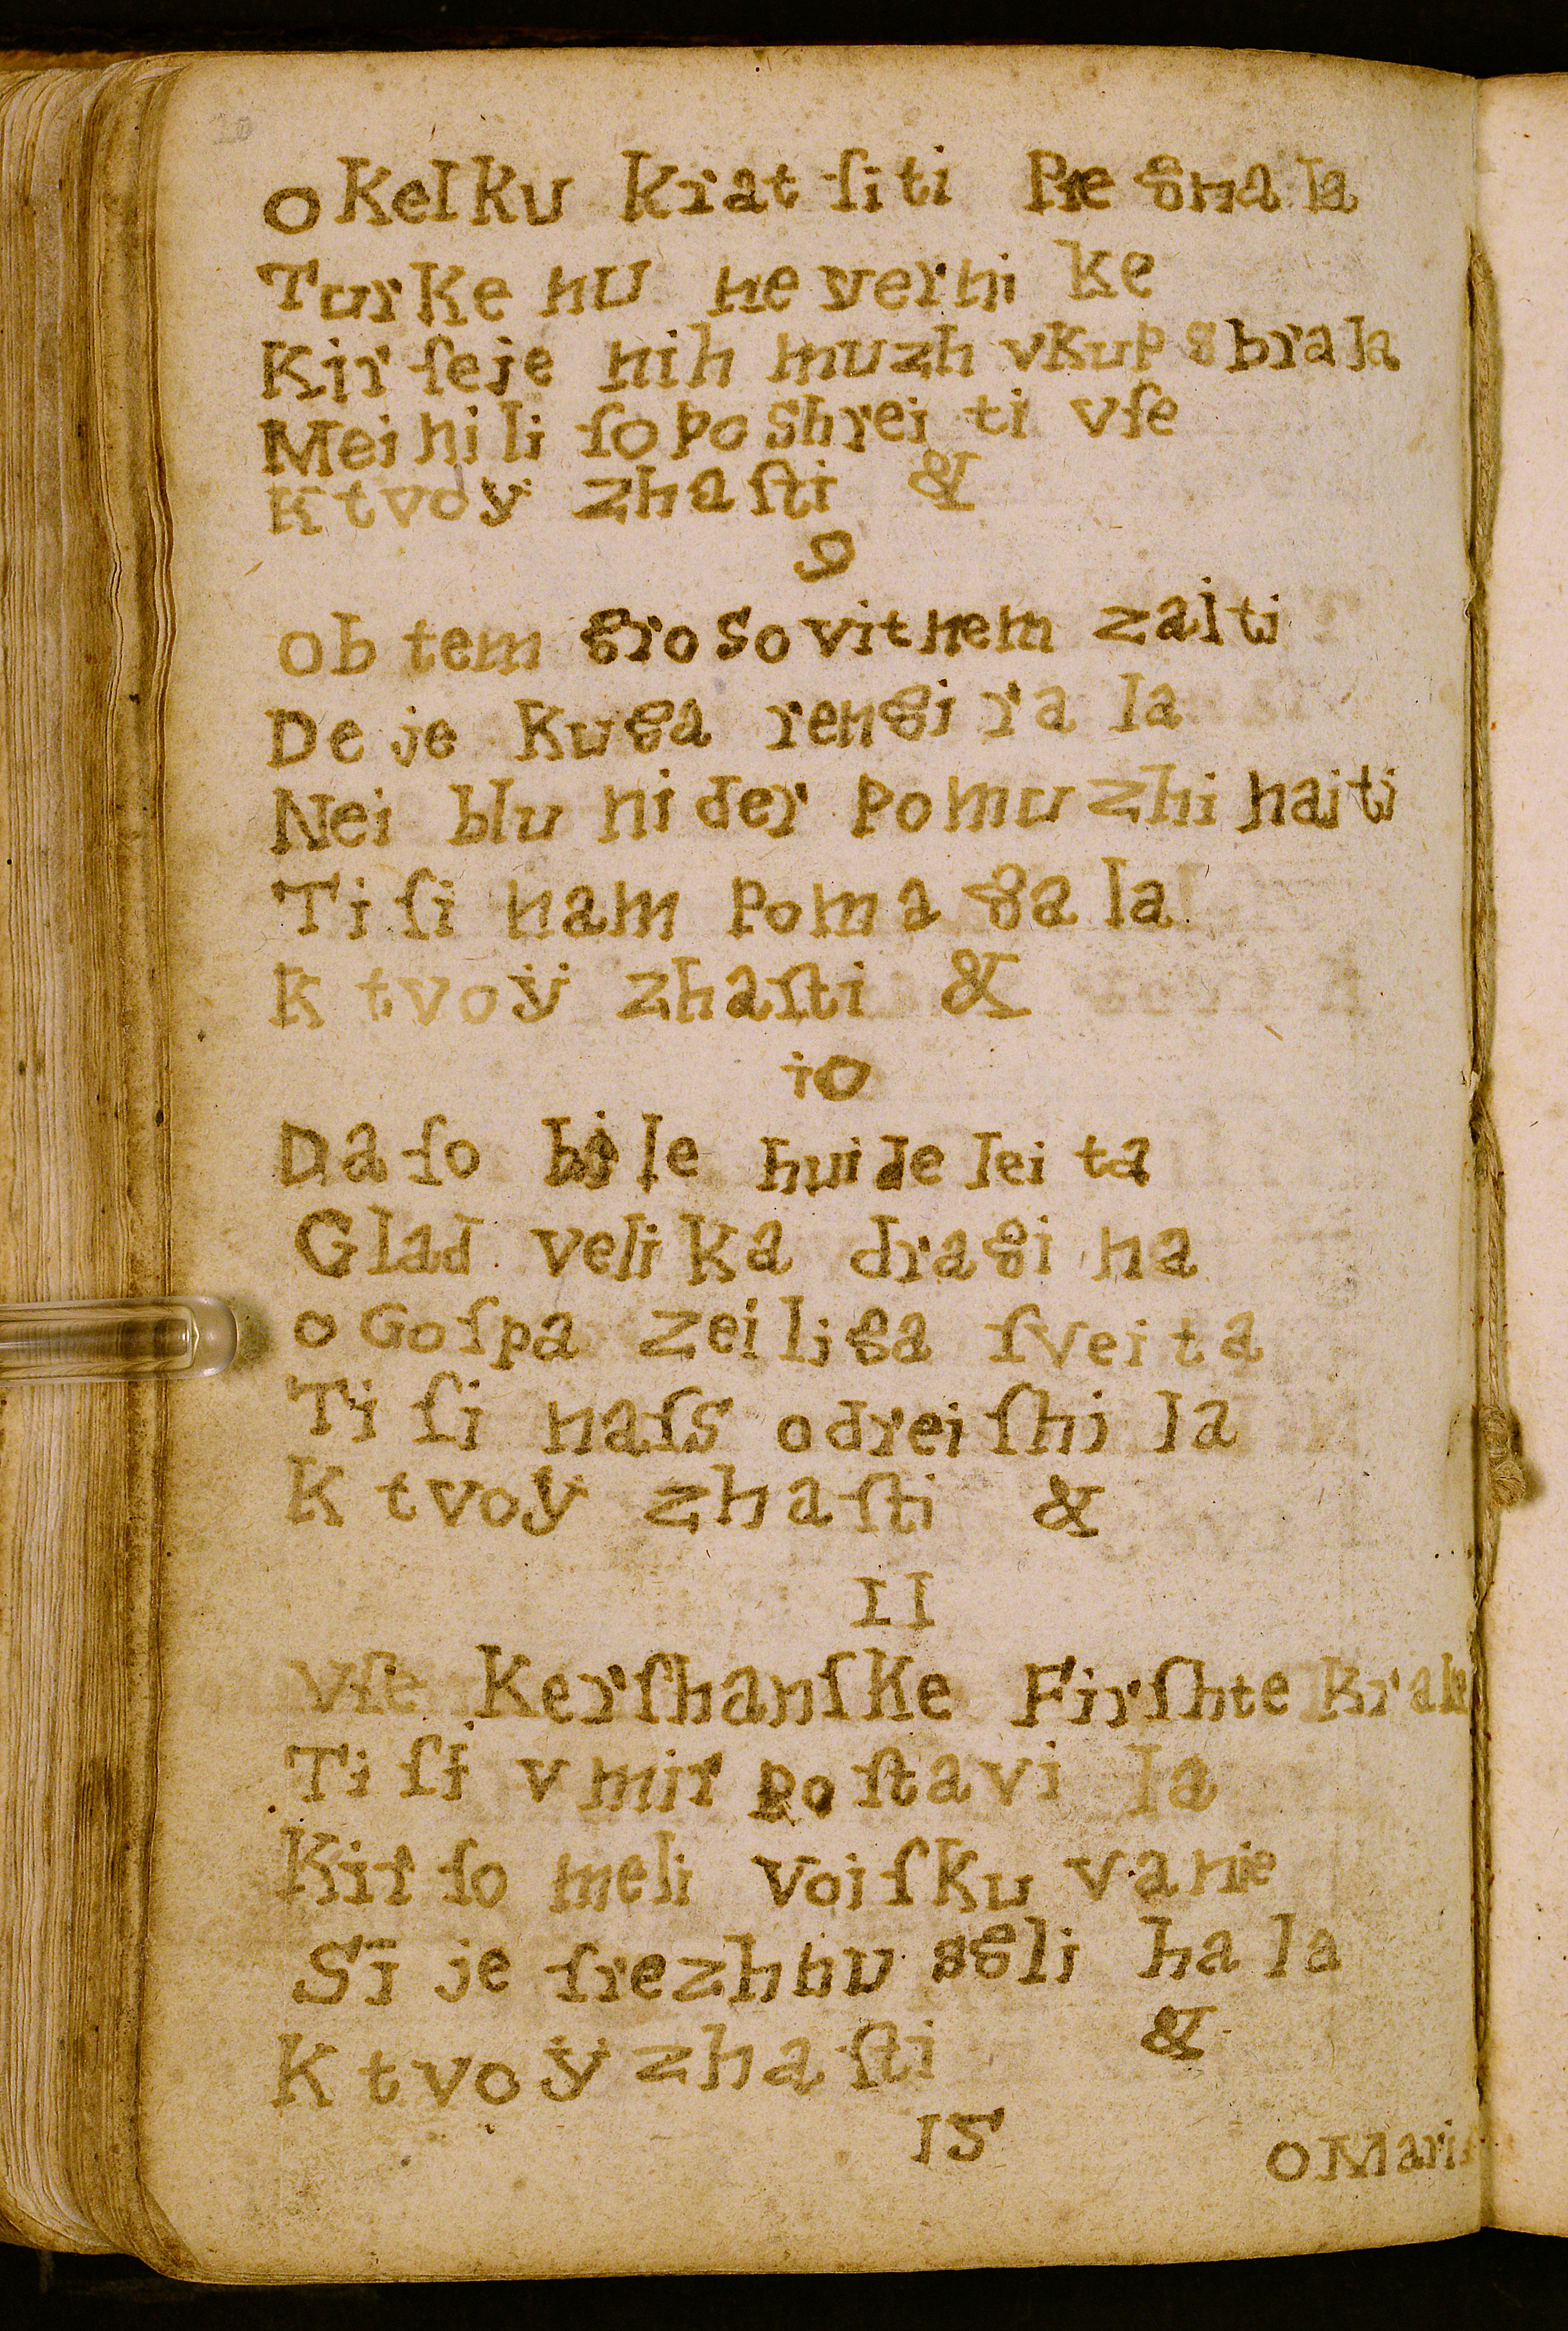 o Kelku krat ſiti Pregnala
Turke nu neverni ke
Kir ſeje nih muzh vkup sbrala
Mei nili ſo poshrei ti vſe
K tvoÿ zhaſti &
9
ob tem grosovitnem zaiti
De je Kuga rengirala
Nei blu nider pomuzhi naiti
Ti ſi nam pomagala
K tvoÿ zhaſti &
io
Da ſo bile huide leita
Glad velika dragina
o Goſpa zeiliga ſveita
Ti ſi naſs odreiſhila
K tvoÿ zhaſti &
II
Vſe Kerſhanſke Firſhte Krale
Ti ſi v mir poſtavila
Kir ſo meli voiſkuvanie
Si je ſrezhnu sglihala
K tvoÿ zhaſti &
o Mari